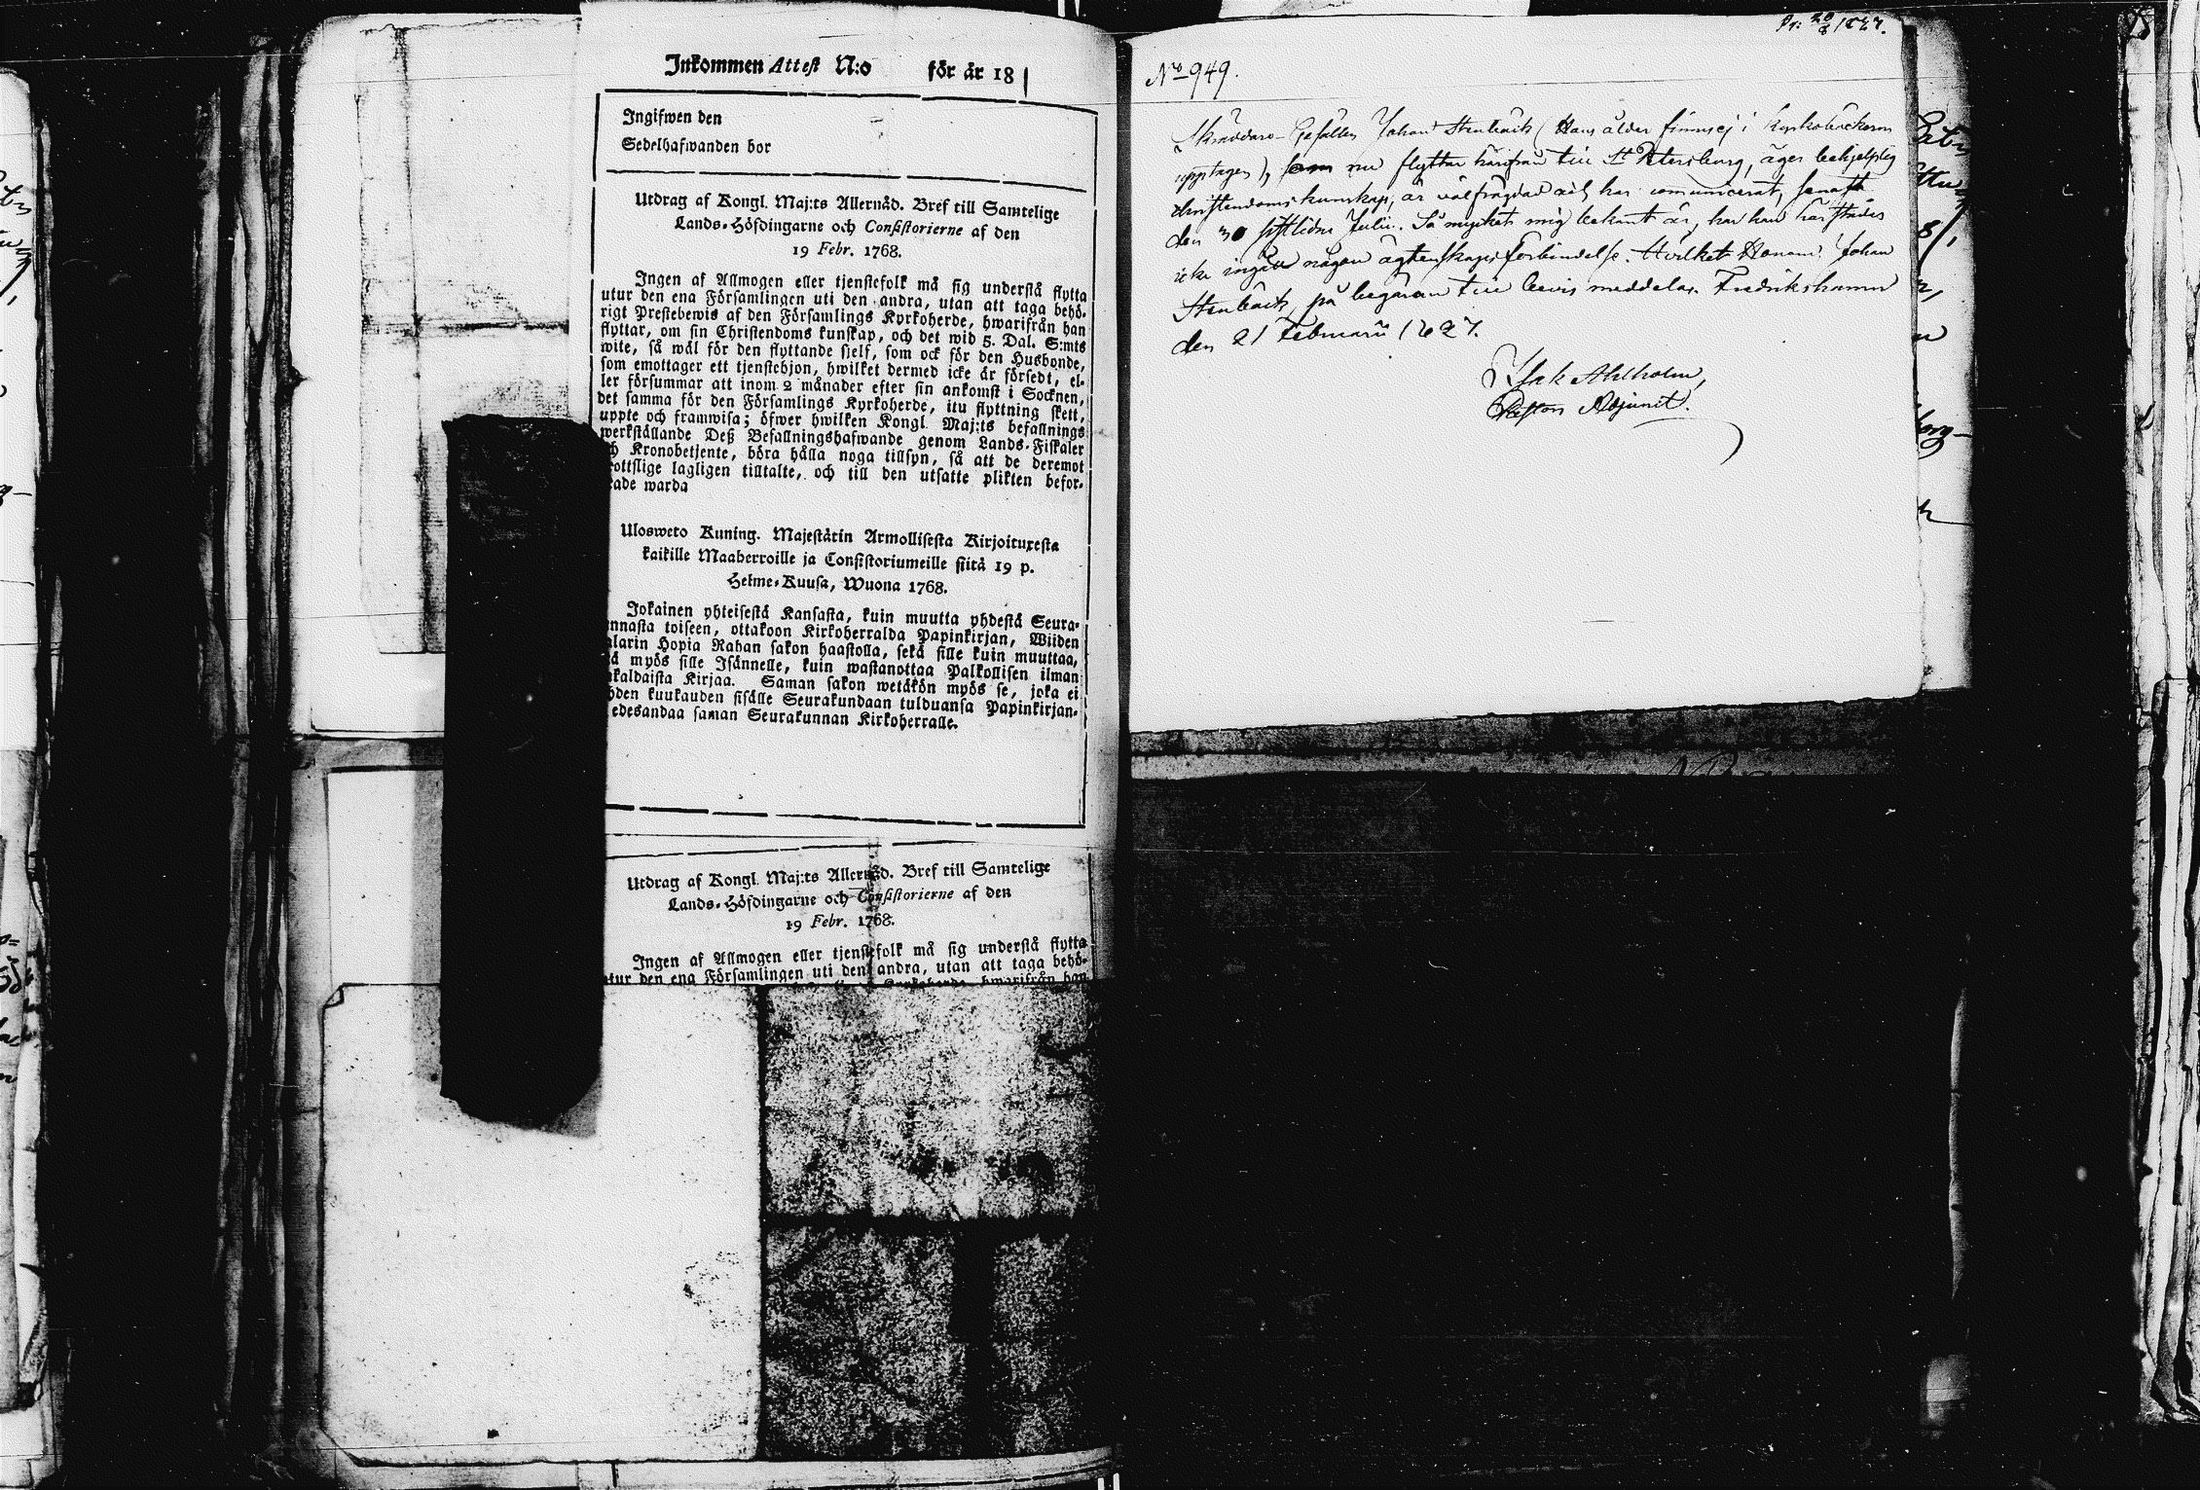 Inkommen Attest N:o för år 18
Ingifwen den
Sedelhafwanden bor
Utdrag af Kongl. Maj:ts Allernåd. Bref till Samtelige
Lands-Höfdingarne och Consistorierne af den
19 Febr. 1768.
Ingen af Allmogen eller tjenstefolk må sig understå flytta
utur den ena Församlingen uti den andra, utan att taga behö-
rigt Prestebewis af den Församlings Kyrkoherde, hwarifrån han
flyttar, om sin Christendoms kunskap, och det wid 5. Dal. S:mts
wite, så wäl för den flyttande sjelf, som ock för den Husbonde,
som emottager ett tjenstehjon, hwilket dermed icke är försedt, el-
ler försummar att inom 2 månader efter sin ankomst i Socknen,
det samma för den Församlings Kyrkoherde, itu flyttning skett,
uppte och framwisa; öfwer hwilken Kongl. Maj:ts befallnings
werkställande Deß Befallningshafwande genom Lands-Fiskaler
ch Kronobetjente, böra hålla noga tillsyn, så att de deremot
rottslige lagligen tilltalte, och till den utsatte plikten befor-
rade warda
Ulosweto Kuning. Majestätin Armollisesta Kirjoituxesta
kaikille Maaherroille ja Consistoriumeille siitä 19 p.
Helme-Kuusa, Wuona 1768.
Jokainen yhteisestä Kansasta, kuin muutta yhdestä Seura-
unnasta toiseen, ottakoon Kirkoherralda Papinkirjan, Wiiden
alarin Hopia Rahan sakon haastolla, sekä sille kuin muuttaa,
ä myös sille Isännelle, kuin wastanottaa Palkollisen ilman
nkaldaista Kirjaa. Saman sakon wetäkön myös se, joka ei
hden kuukauden sisälle Seurakundaan tulduansa Papinkirjan-
edesandaa saman Seurakunnan Kirkoherralle.
Utdrag af Kongl. Maj:ts Allernåd. Bref till Samtelige
Lands-Höfdingarne och Consistorierne af den
19 Febr. 1768.
Ingen af Allmogen eller tjenstefolk må sig understå flytta
utur den ena Församlingen uti den andra, utan att taga behö-
Kyrkoherde, hwarifrån han
Pr: 20/8 1827.
No 949.
Skräddare-Gesällen Johan Stenbäck (Hans ålder finnes ej i Kyrkoböckerna
upptagen), som nu flyttar härifrån till St Petersburg, äger behjelplig
christendoms kunskap, är välfrägdad och har communicerat, senast
den 30 sistlidne Julii. Så mycket mig bekant är, har han härstädes
icke ingått någon ägtenskaps förbindelse. Hvilket Honom Johan
Stenbäck, på begäran till bevis meddelas. Fredrikshamn
den 21 Februarii 1827.
Isak Ahlholm,
Pastors Adjunct.